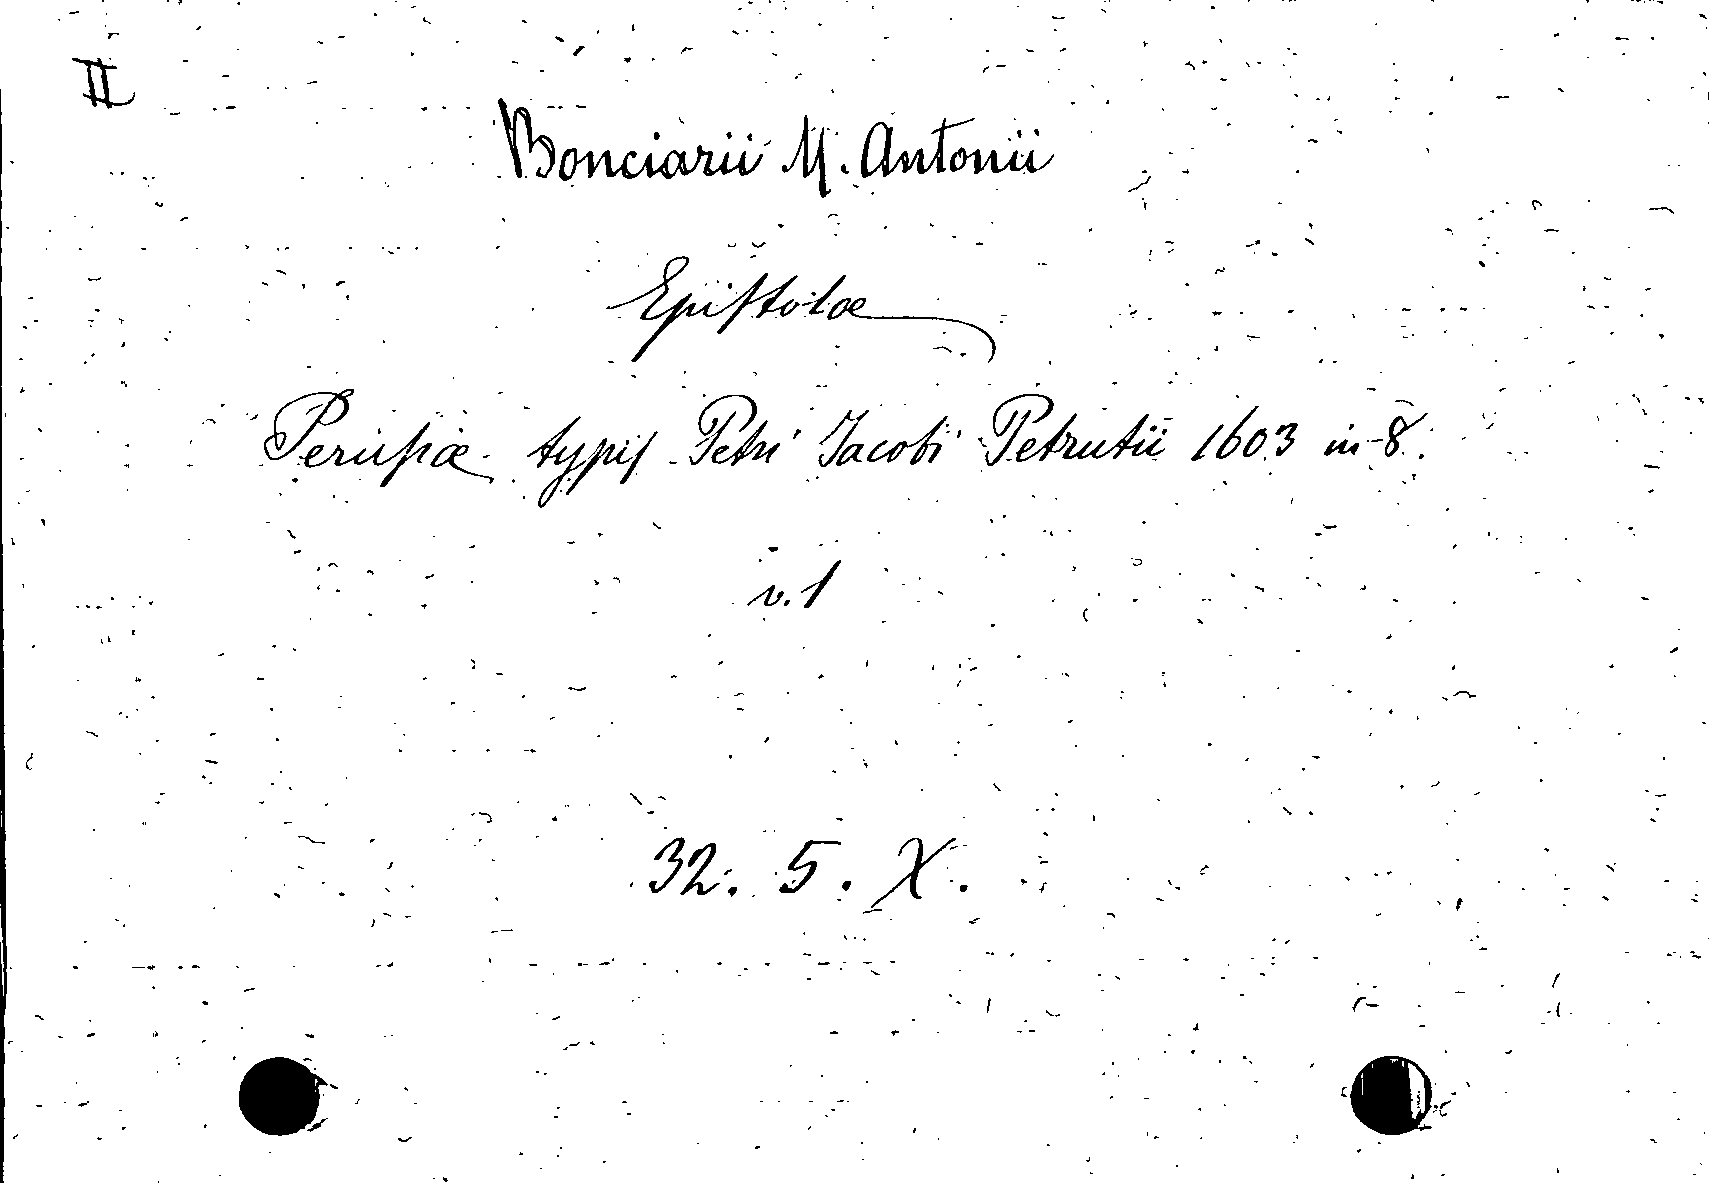 II
Bonciarii M. Antonii
Epiſtolæ
Peruſiæ typiſ Petri Jacobi Petrutii 1603 in-8.
v. 1
32. 5. X.